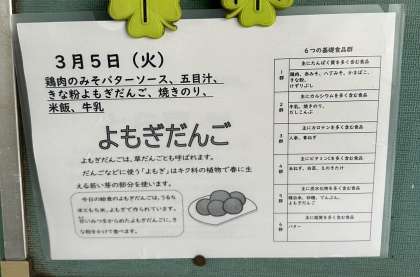 3月5日（火）
鶏肉のみそバターソース、五目汁、
きな粉よもぎだんご、焼きのり、
米飯、牛乳
よもぎだんご
よもぎだんごは、草だんごとも呼ばれます。
だんごなどに使う「よもぎ」はキク科の植物で春に生
える若い芽の部分を使います。
今日の給食のよもぎだんごは、うるち
米ともち米、よもぎで作られています。
きな粉をかけて食べます。
6つの基礎食品群
1群
主にたんぱく質を多く含む食品
鶏肉、赤みそ、八丁みそ、かまぼこ、
きな粉、
けずりぶし
2群
主にカルシウムを多く含む食品
牛乳、焼きのり、
だしこんぶ
3群
主にカロテンを多く含む食品
人参、葉ねぎ
4群
主にビタミンCを多く含む食品
5群
主に炭水化物を多く含む食品
精白米、砂糖、でんぷん、
よもぎだんご
6群
主に脂質を多く含む食品
バター